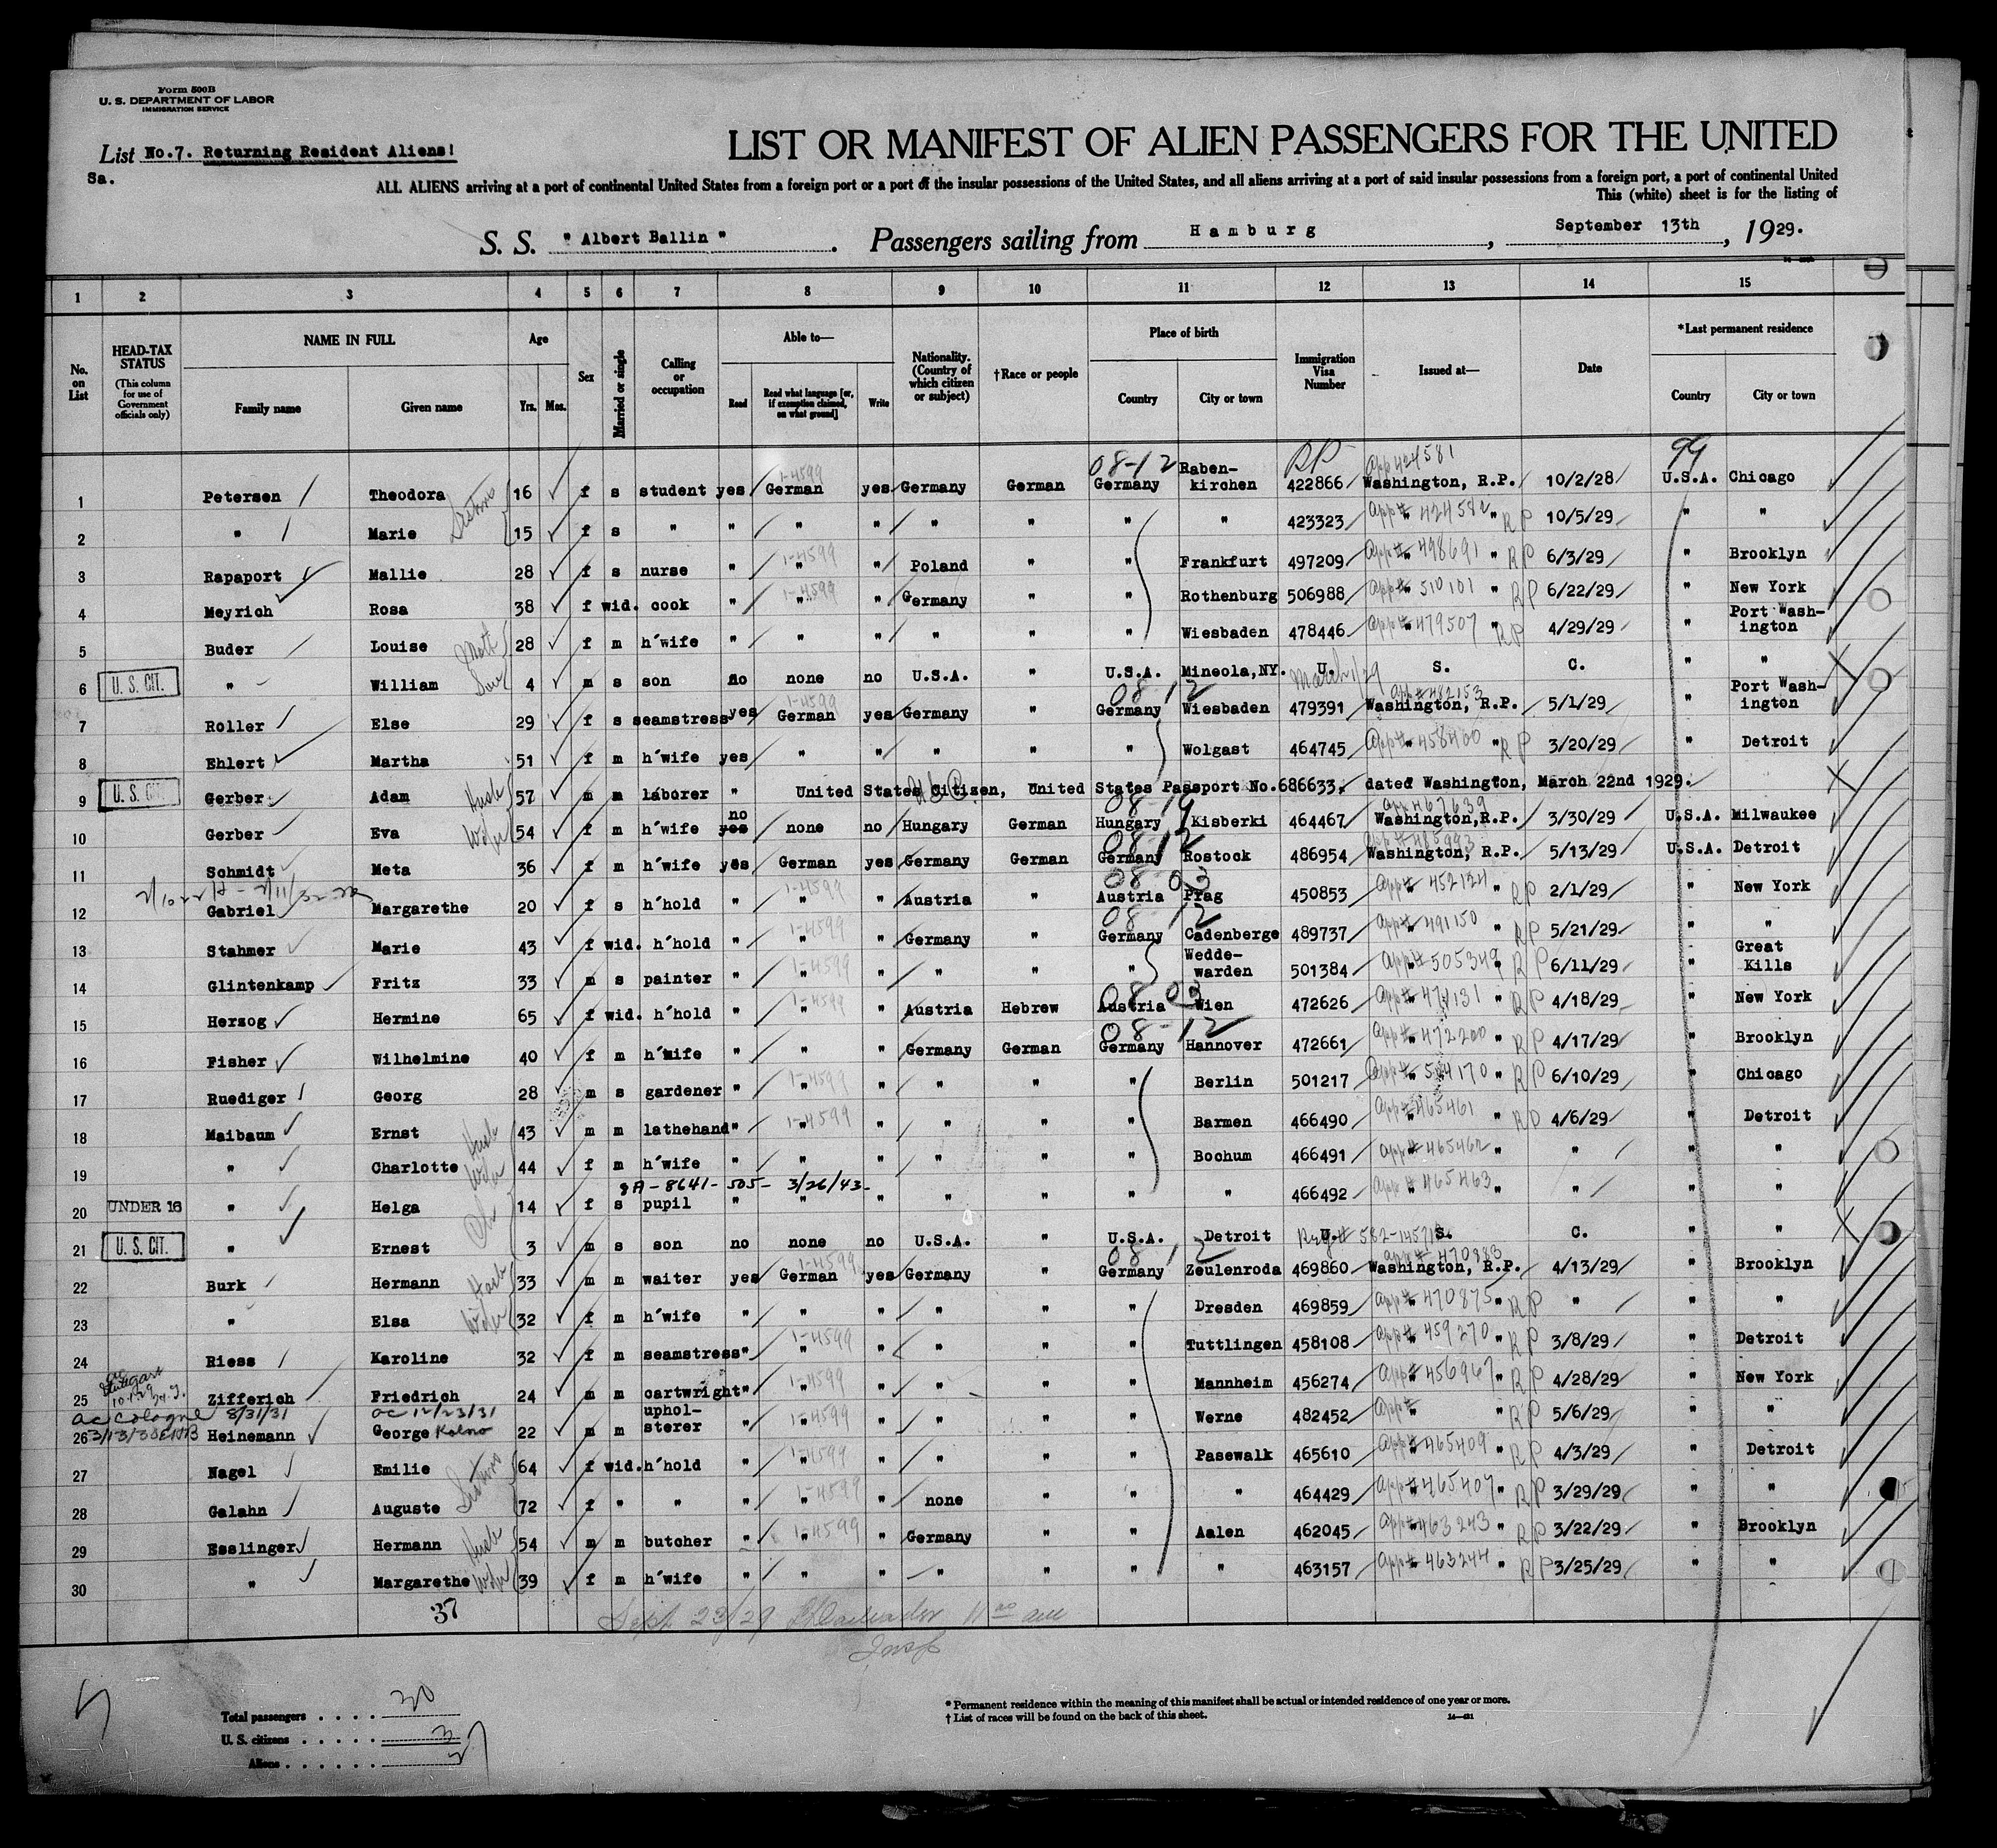 Form 500B
U. S. DEPARTMENT OF LABOR
IMMIGRATION SERVICE
List No.7. Returning Resident Aliens!
Sa.
LIST OR MANIFEST OF ALIEN PASSENGERS FOR THE UNITED
ALL ALIENS arriving at a port of continental United States from a foreign port or a port of the insular possessions of the United States, and all aliens arriving at a port of said insular possessions from a foreign port, a port of continental United
This (white) sheet is for the listing of
S. S. " Albert Ballin " . Passengers sailing from Hamburg , September 13th , 1929.
1 2 3 4 5 6 7 8 9 10 11 12 13 14 15
No. on List
HEAD-TAX STATUS (This column for use of Government officials only)
NAME IN FULL Family name Given name
Age Yrs. Mos.
Sex
Married or single
Calling or occupation
Able to— Read Read what language [or, if exemption claimed, on what ground] Write
Nationality. (Country of which citizen or subject)
†Race or people
Place of birth Country City or town
Immigration Visa Number
Issued at—
Date
*Last permanent residence Country City or town
08-12 RP App 424581 99
1 Petersen Theodora Sisters 16 f s student yes 1-4599 German yes Germany German Germany Raben-kirchen 422866 Washington, R.P. 10/2/28 U.S.A. Chicago
2 " Marie 15 f s " " " " " " " " 423323 App# 424582 " RP 10/5/29 " "
3 Rapaport Mallie 28 f s nurse " 1-4599 " " Poland " " Frankfurt 497209 App# 498691 " RP 6/3/29 " Brooklyn
4 Meyrich Rosa 38 f wid. cook " 1-4599 " " Germany " " Rothenburg 506988 App# 510101 " RP 6/22/29 " New York
5 Buder Louise 28 f m h'wife " " " " " " Wiesbaden 478446 App# 479507 " RP 4/29/29 " Port Wash-ington
6 U. S. CIT. " William Son 4 m s son no none no U.S.A. " U.S.A. Mineola,NY. U. S. C. " "
7 Roller Else 29 f s seamstress yes 1-4599 German yes Germany " 08-12 Germany Wiesbaden 479391 App# 482153 Washington, R.P. 5/1/29 " Port Wash-ington
8 Ehlert Martha 51 f m h'wife yes " " " " " Wolgast 464745 App# 458400 " RP 3/20/29 " Detroit
9 U. S. CIT. Gerber Adam Husb 57 m m laborer " United States Citizen, United States Passport No.686633. dated Washington, March 22nd 1929.
10 Gerber Eva Wife 54 f m h'wife yes no none no Hungary German 08-19 Hungary Kisberki 464467 App 467639 Washington,R.P. 3/30/29 U.S.A. Milwaukee
11 Schmidt Meta 36 f m h'wife yes German yes Germany German 08-12 Germany Rostock 486954 App# 485993 Washington, R.P. 5/13/29 U.S.A. Detroit
12 Gabriel Margarethe 20 f s h'hold " 1-4599 " " Austria " 08-03 Austria Prag 450853 App# 452124 " RP 2/1/29 " New York
13 Stahmer Marie 43 f wid. h'hold " 1-4599 " " Germany " 08-12 Germany Cadenberge 489737 App# 491150 " RP 5/21/29 " "
14 Glintenkamp Fritz 33 m s painter " 1-4599 " " " " " Wedde-warden 501384 App# 505349 " RP 6/11/29 " Great Kills
15 Herzog Hermine 65 f wid. h'hold " 1-4599 " " Austria Hebrew 08-03 Austria Wien 472626 App# 474131 " RP 4/18/29 " New York
16 Fisher Wilhelmine 40 f m h'wife " " " Germany German 08-12 Germany Hannover 472661 App# 472200 " RP 4/17/29 " Brooklyn
17 Ruediger Georg 28 m s gardener " 1-4599 " " " " " Berlin 501217 App# 504170 " RP 6/10/29 " Chicago
18 Maibaum Ernst Husb 43 m m lathehand " 1-4599 " " " " " Barmen 466490 App# 465461 " RP 4/6/29 " Detroit
19 " Charlotte Wife 44 f m h'wife " " " " " " Bochum 466491 App# 465462 " " " "
8A-8641-505- 3/26/43-
20 UNDER 16 " Helga Ch 14 f s pupil " " " " " " " 466492 App# 465463 " " " "
21 U. S. CIT. " Ernest 3 m s son no none no U.S.A. " U.S.A. Detroit U. S. C. " "
22 Burk Hermann Husb 33 m m waiter yes 1-4599 German yes Germany " 08-12 Germany Zeulenroda 469860 App# 470883 Washington, R.P. 4/13/29 " Brooklyn
23 " Elsa Wife 32 f m h'wife " " " " " " Dresden 469859 App# 470875 " RP " " "
24 Riess Karoline 32 f m seamstress " 1-4599 " " " " " Tuttlingen 458108 App# 459270 " RP 3/8/29 " Detroit
25 Stuttgart Zifferich Friedrich 24 m m cartwright " 1-4599 " " " " " Mannheim 456274 App# 456967 " RP 4/28/29 " New York
ac Cologne 8/31/31 ac 12/23/31
26 Heinemann George 22 m m uphol-sterer " 1-4599 " " " " " Werne 482452 App# " " RP 5/6/29 " "
27 Nagel Emilie Sisters 64 f wid. h'hold " 1-4599 " " " " " Pasewalk 465610 App# 465409 " RP 4/3/29 " Detroit
28 Galahn Auguste 72 f " " " 1-4599 " " none " " " 464429 App# 465407 " RP 3/29/29 " "
29 Esslinger Hermann Husb 54 m m butcher " 1-4599 " " Germany " " Aalen 462045 App# 463243 " RP 3/22/29 " Brooklyn
30 " Margarethe Wife 39 f m h'wife " " " " " " " 463157 App# 463244 " RP 3/25/29 " "
37
Sept 23/29 11 00 am
Insp
Total passengers . . . . 30
U. S. citizens . . . . . 3
Aliens . . . . . . 27
* Permanent residence within the meaning of this manifest shall be actual or intended residence of one year or more.
† List of races will be found on the back of this sheet.
14—421